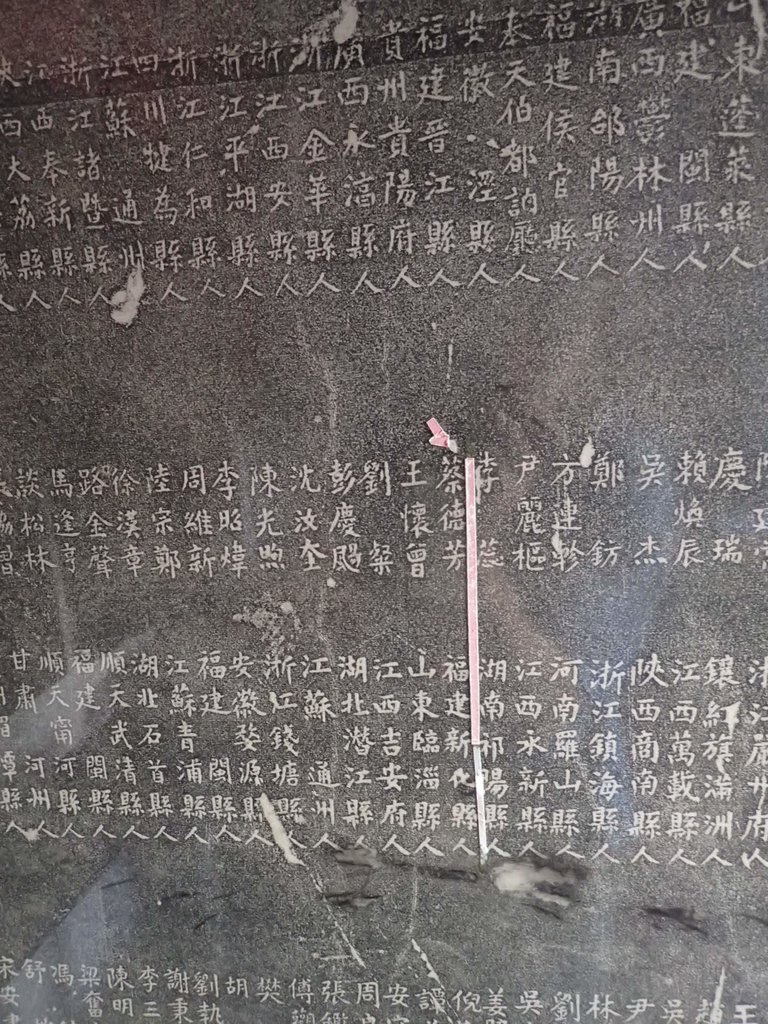 山東蓬萊縣人
福建閩縣人
廣西鬱林州人
湖南邵陽縣人
福建侯官縣人
奉天伯都訥廳人
安徽涇縣人
福建晉江縣人
貴州貴陽府人
廣西永淳縣人
浙江金華縣人
浙江西安縣人
浙江平湖縣人
浙江仁和縣人
四川犍為縣人
江蘇通州人
浙江諸暨縣人
江西奉新縣人
西大荔縣人
慶瑞 鑲紅旗滿洲人
賴煥辰 江西萬載縣人
吳杰 陝西商南縣人
鄭鈁 浙江鎮海縣人
方連軫 河南羅山縣人
尹麗樞 江西永新縣人
李蕊 湖南祁陽縣人
蔡德芳 福建化縣人
王懷曾 山東臨淄縣人
劉粲 江西吉安府人
彭慶颺 湖北潛江縣人
沈汝奎 江蘇通州人
陳光煦 浙江錢塘縣人
李昭煒 安徽婺源縣人
周維新 福建閩縣人
陸宗鄭 江蘇青浦縣人
徐漢章 湖北石首縣人
路金聲 順天武清縣人
馬逢亨 福建閩縣人
談松林 順天甯河縣人
甘肅河州人
王
趙
吳
尹
林
劉
吳
姜
倪
譚
安
周
張
傅
樊
胡
劉執
謝秉
李三
陳明
梁奮
馮
舒
宋安